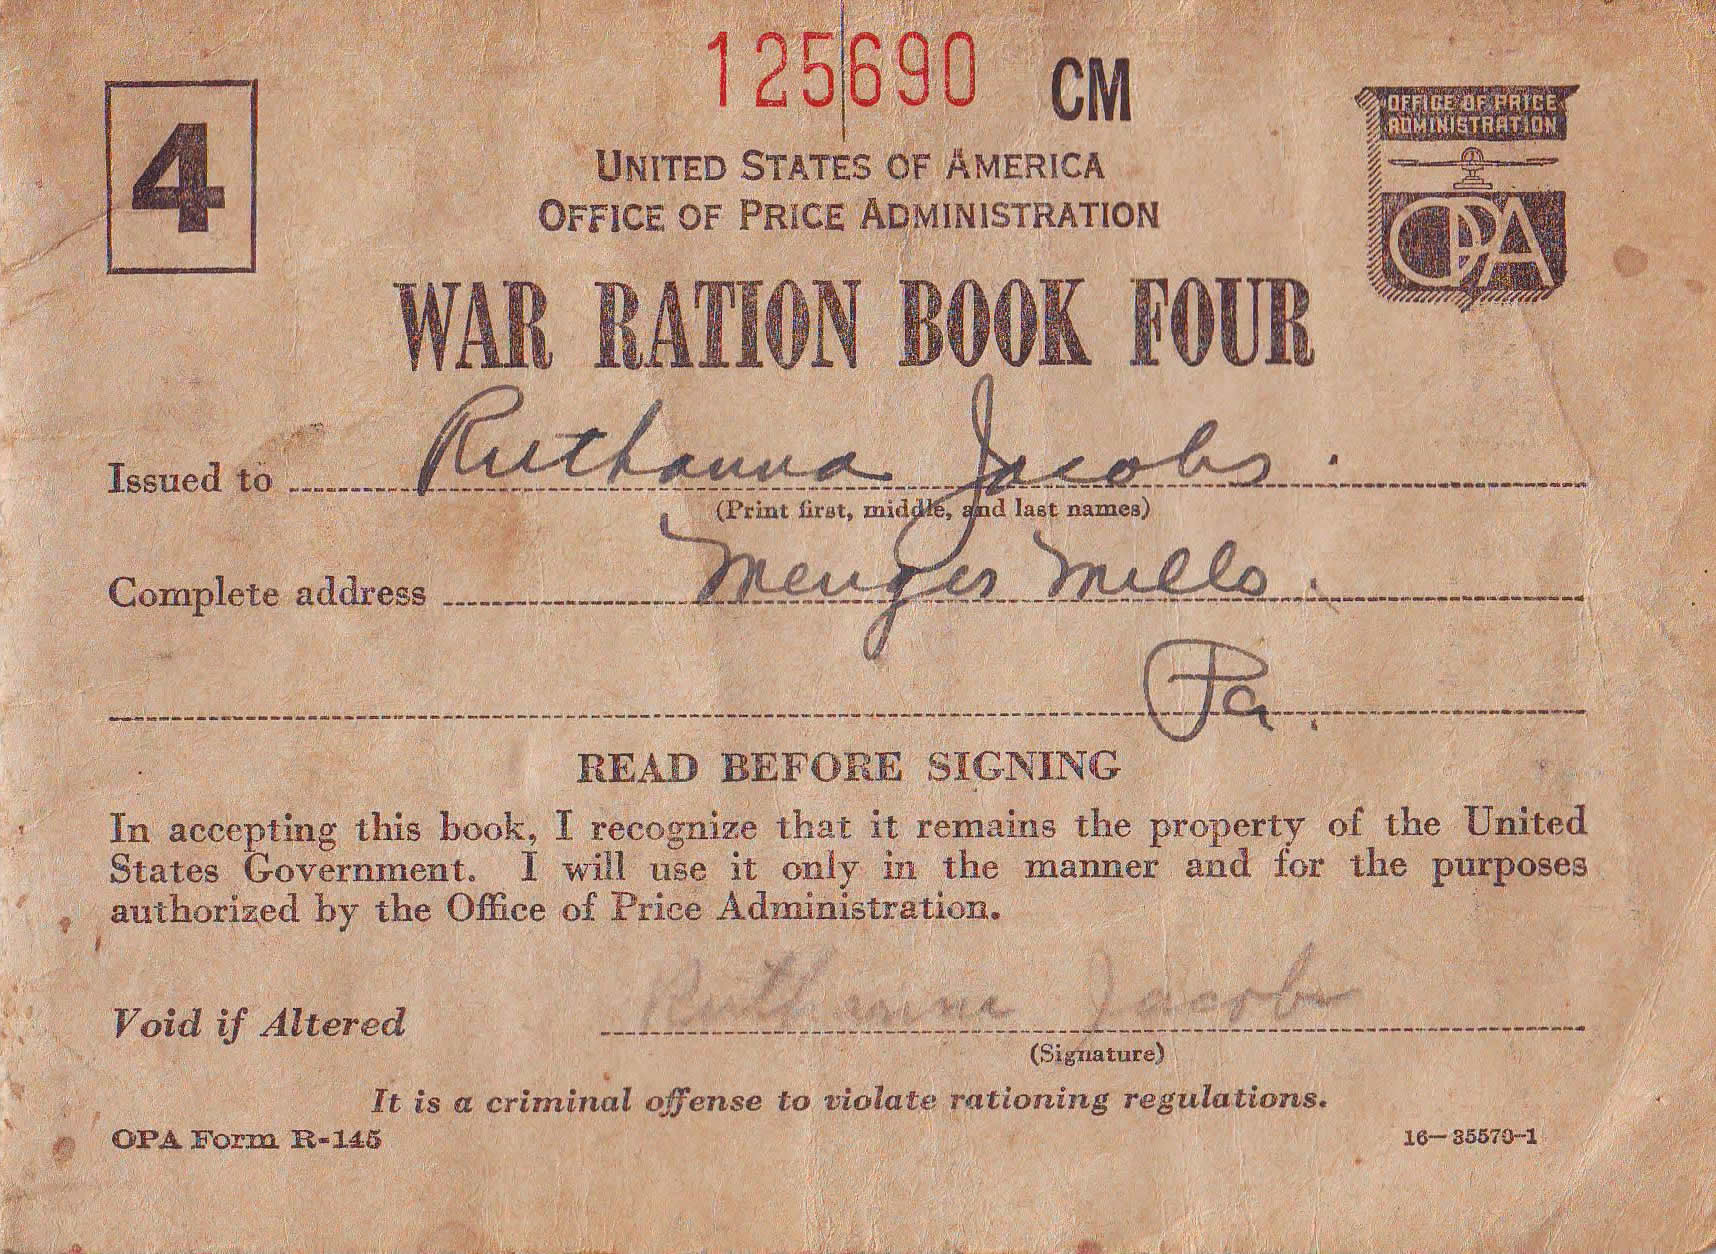 125690 CM
4
OFFICE OF PRICE
ADMINISTRATION
OPA
UNITED STATES OF AMERICA
OFFICE OF PRICE ADMINISTRATION
WAR RATION BOOK FOUR
Issued to Ruthanna Jacobs.
(Print first, middle, and last names)
Complete address Menges Mills.
Pa.
READ BEFORE SIGNING
In accepting this book, I recognize that it remains the property of the United
States Government. I will use it only in the manner and for the purposes
authorized by the Office of Price Administration.
Void if Altered Ruthanna Jacobs
(Signature)
It is a criminal offense to violate rationing regulations.
OPA Form R-145
16—35570-1